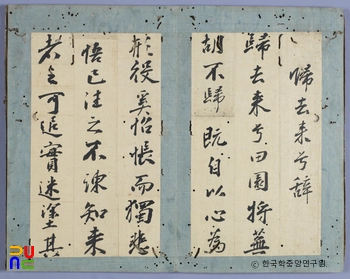 歸去來兮辭
歸去來兮田園將蕪
胡不歸旣自以心爲
形役奚惆悵而獨悲
悟已往之不諫知來
者之可追實迷塗其
한국학중앙연구원